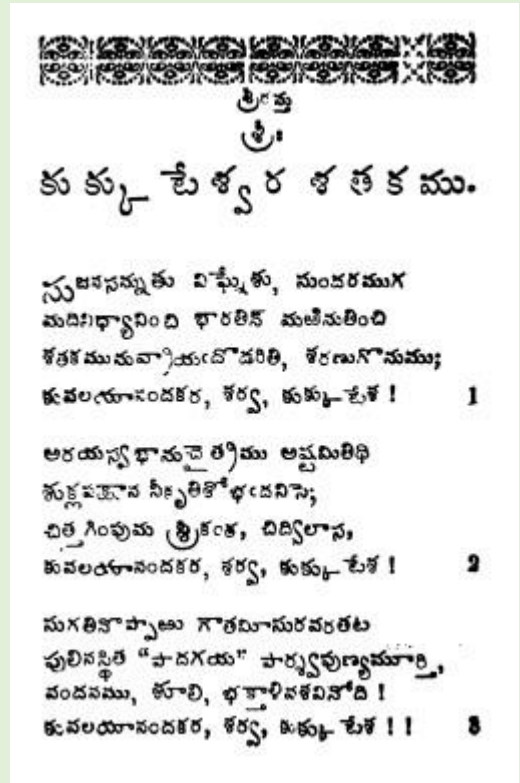 శ్రీరస్తు
శ్రీః
కుక్కుటేశ్వర శతకము.
సుజనసన్నుతు విఘ్నేశు, సుందరముగ
మదినిధ్యానించి భారతిన్ మఱినుతించి
శతకమునువ్రాయఁదొడరితి, శరణుగొనుము;
కువలయానందకర, శర్వ, కుక్కుటేశ ! 1
అరయస్వభానుచైత్రము అష్టమితిథి
శుక్లపక్షాన నీకృతిశోభఁదనిసె;
చిత్తగింపుమ శ్రీకంఠ, చిద్విలాస,
కువలయానందకర, శర్వ, కుక్కుటేశ ! 2
సుగతినొప్పాఱు గౌతమీసురవరతట
పులినస్థిత “పాదగయ” పార్శ్వపుణ్యమూర్తి,
వందనము, శూలి, భక్తాళివశవినోది !
కువలయానందకర, శర్వ, కుక్కుటేశ ! ! 3